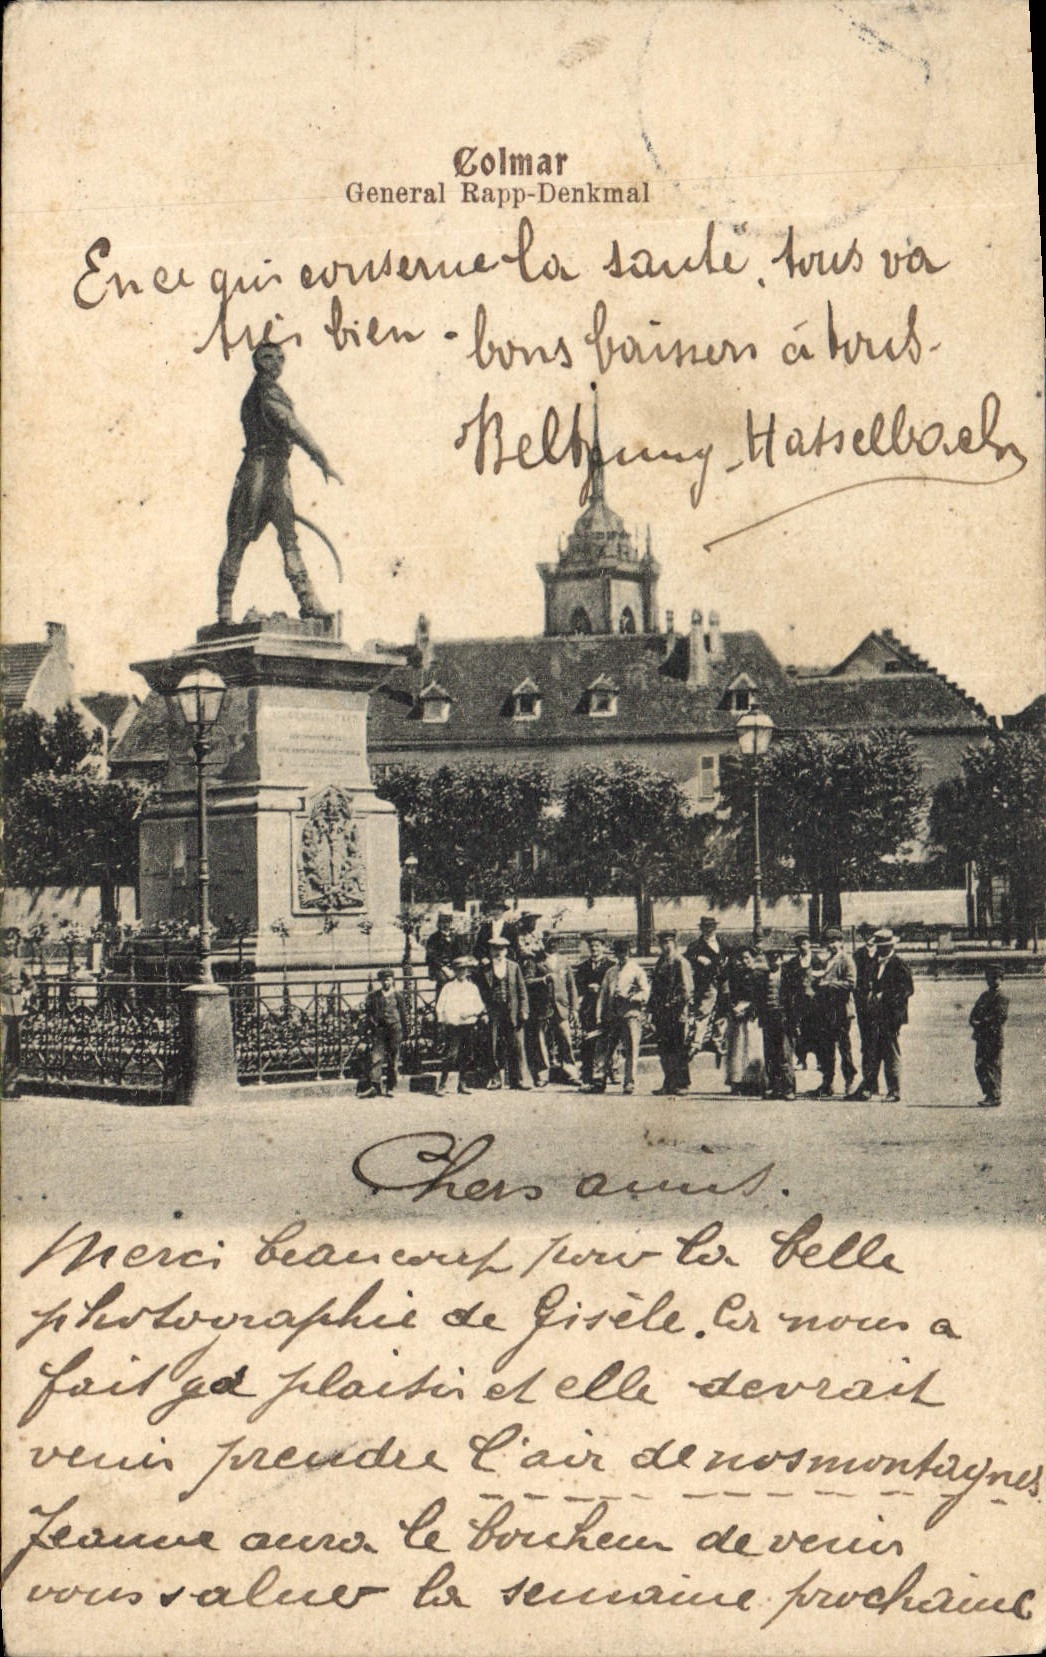 Colmar
General Rapp-Denkmal
En ce qui conserne la santé, tous va
très bien - bons baisers à tous.
Hasselbach
Chers amis.
Merci beaucoup pour la belle
photographie de Gisèle. Ça nous a
fait gd plaisir et elle devrait
venir prendre l'air de nos montagnes
Jeanne aura le bonheur de venir
vous saluer la semaine prochaine